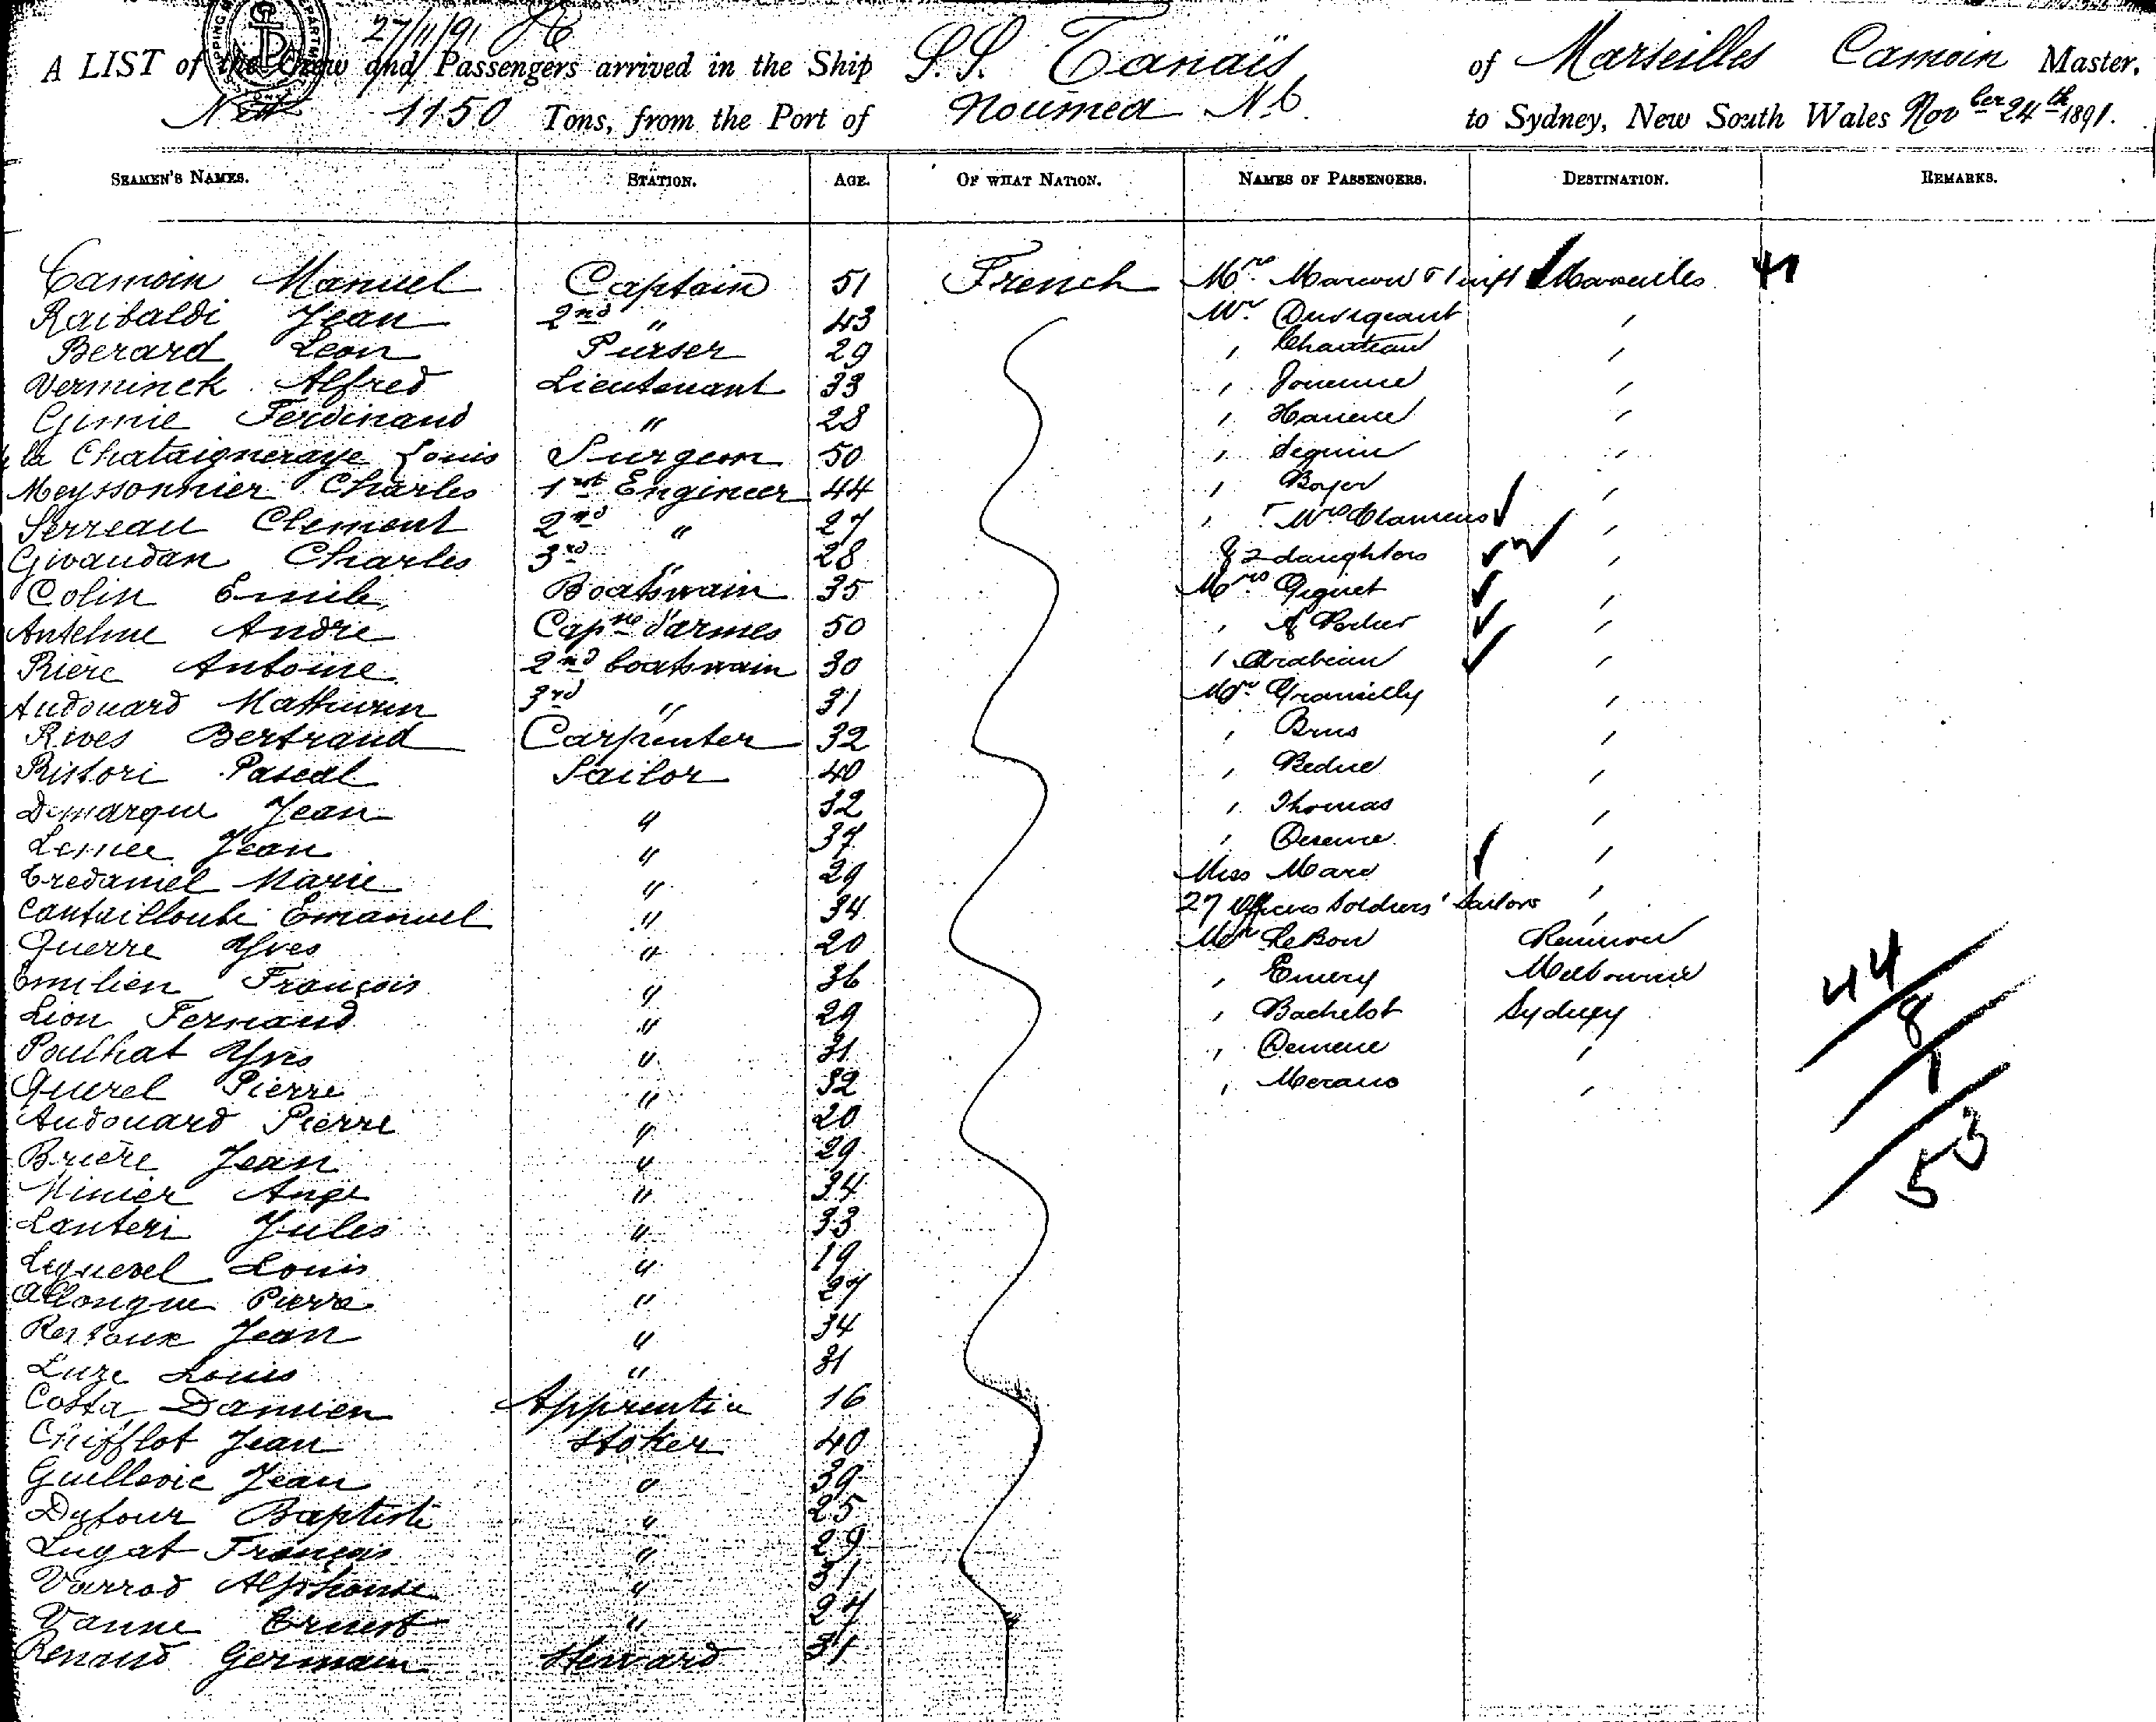 27/11/91
A LIST of the Crew and Passengers arrived in the Ship S.S. Tanaïs of Marseilles Camoin Master,
Nett 1150 Tons, from the Port of Noumea N.C. to Sydney, New South Wales Novber 24th 1891.
SEAMEN'S NAMES. STATION. AGE. OF WHAT NATION. NAMES OF PASSENGERS. DESTINATION. REMARKS.
Camoin Manuel Captain 51 French Mrs Marseilles 41
Raibaldi Jean 2nd " 43 Mr Duvigeant "
Berard Leon Purser 29 " "
Verminck Alfred Lieutenant 33 " "
Gimie Ferdinand " 28 " "
la Chataigneraye Louis Surgeon 50 " Seguin "
Meyssonnier Charles 1st Engineer 44 " Boyer "
Serreau Clement 2nd " 27 " & Mrs Clamens "
Givaudan Charles 3rd " 28 & 2 daughters "
Colin Emile 35 Boatswain Mrs Giquet "
Antelme Andre Capne d'armes 50 " "
Riere Antoine 2nd boatswain 30 " Arabian "
Audouard Mathurin 3rd " 31 Mrs "
Rives Bertrand Carpenter 32 " Brus "
Ristori Pascal Sailor 40 " Redue "
Demarque Jean " 32 " Thomas "
Lemee Jean " 37 " "
Tredaniel Marie " 29 Miss "
Cantailloube Emanuel " 34 27 Officers Soldiers & Sailors "
Querre Yves " 20 Mr LeBon Reunion
Emilien François " 36 " Emery Melbourne
Lion Fernand " 29 " Bachelot Sydney
Poulhat Yves " 31 " "
Querel Pierre " 32 " Merano "
Audouard Pierre " 20
Briere Jean " 29
Minier Ange " 34
Lanteri Jules " 33
Lequevel Louis " 19
Allongue Pierre " 27
Jean " 34
Luze Louis " 31
Costa Damien Apprentice 16
Chifflot Jean Stoker 40
Guillevic Jean " 39
Dufour Baptiste " 25
Lugat François " 29
Varrod Alphonse " 31
Vanne Ernest " 27
Renaud Germain Steward 31
44
8
1
53